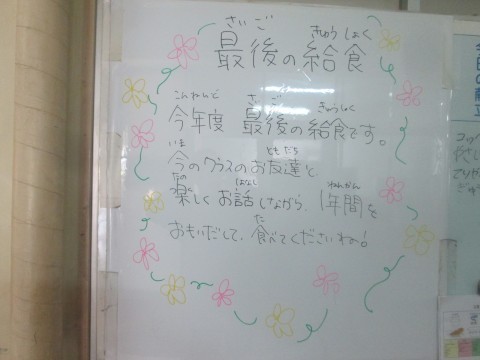 さいご きゅうしょく
最後の給食
こんねんど さいご きゅうしょく
今年度 最後の給食です。
いま ともだち
今のクラスのお友達と
たの はなし ねんかん
楽しくお話しながら、1年間を
た
おもいだして、食べてくださいね!